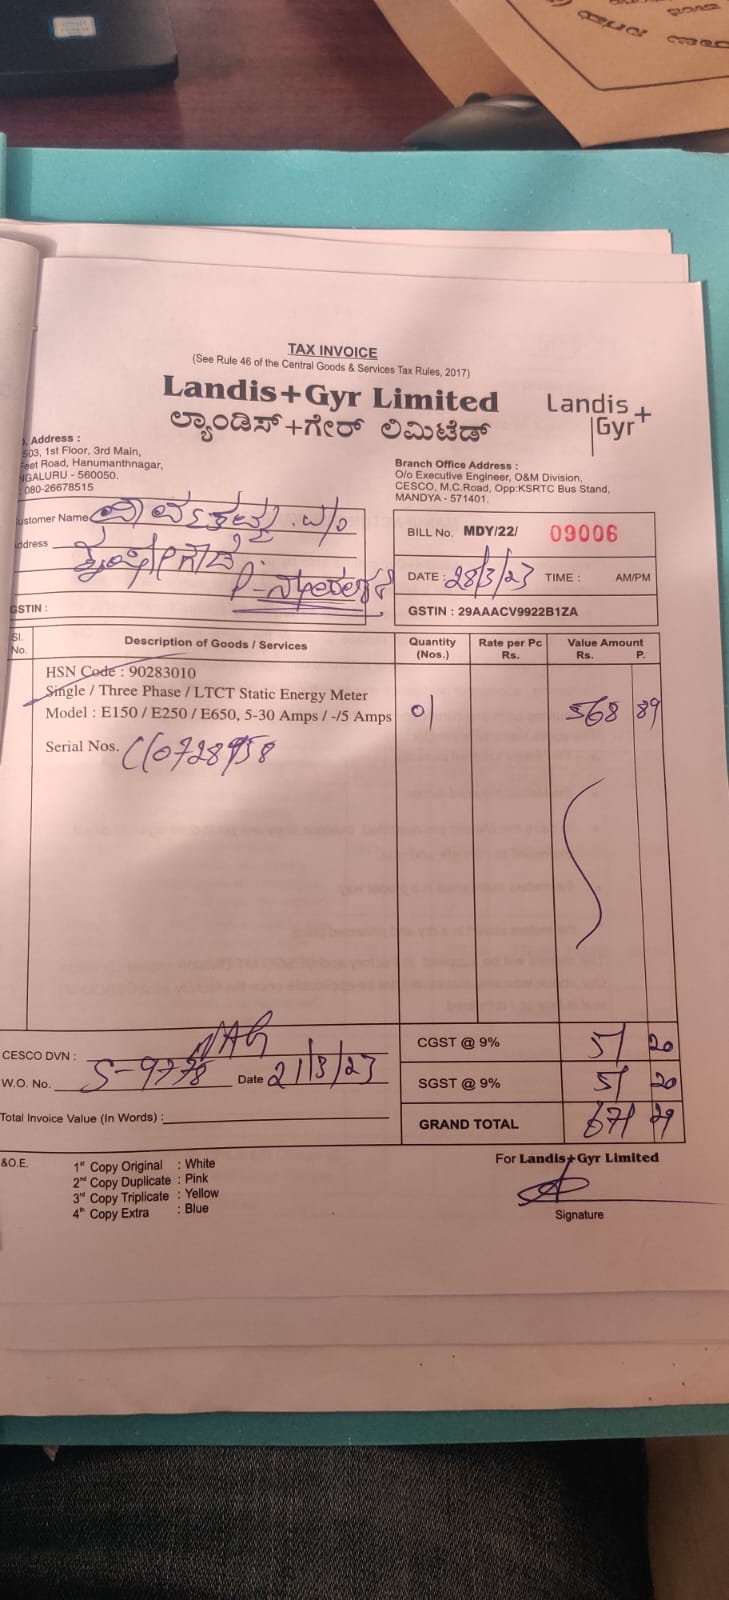 TAX INVOICE
(See Rule 46 of the Central Goods & Services Tax Rules, 2017)
Landis+Gyr Limited
ಲ್ಯಾಂಡಿಸ್+ಗೇರ್ ಲಿಮಿಟೆಡ್
Landis+
Gyr
Address :
503, 1st Floor, 3rd Main,
Feet Road, Hanumanthnagar,
NGALURU - 560050.
080-26678515
Branch Office Address :
O/o Executive Engineer, O&M Division,
CESCO, M.C.Road, Opp:KSRTC Bus Stand,
MANDYA - 571401.
ustomer Name
ddress
GSTIN :
BILL No. MDY/22/ 09006
DATE : 28/3/23 TIME : AM/PM
GSTIN : 29AAACV9922B1ZA
Sl. No. Description of Goods / Services Quantity (Nos.) Rate per Pc Rs. Value Amount Rs. P.
HSN Code : 90283010
Single / Three Phase / LTCT Static Energy Meter
Model : E150 / E250 / E650, 5-30 Amps / -/5 Amps 01 568 89
Serial Nos.
CESCO DVN :
W.O. No. S-9778 Date 21/3/23
Total Invoice Value (In Words) :
CGST @ 9% 51 20
SGST @ 9% 51 20
GRAND TOTAL 671 29
&O.E.
1st Copy Original : White
2nd Copy Duplicate : Pink
3rd Copy Triplicate : Yellow
4th Copy Extra : Blue
For Landis+Gyr Limited
Signature